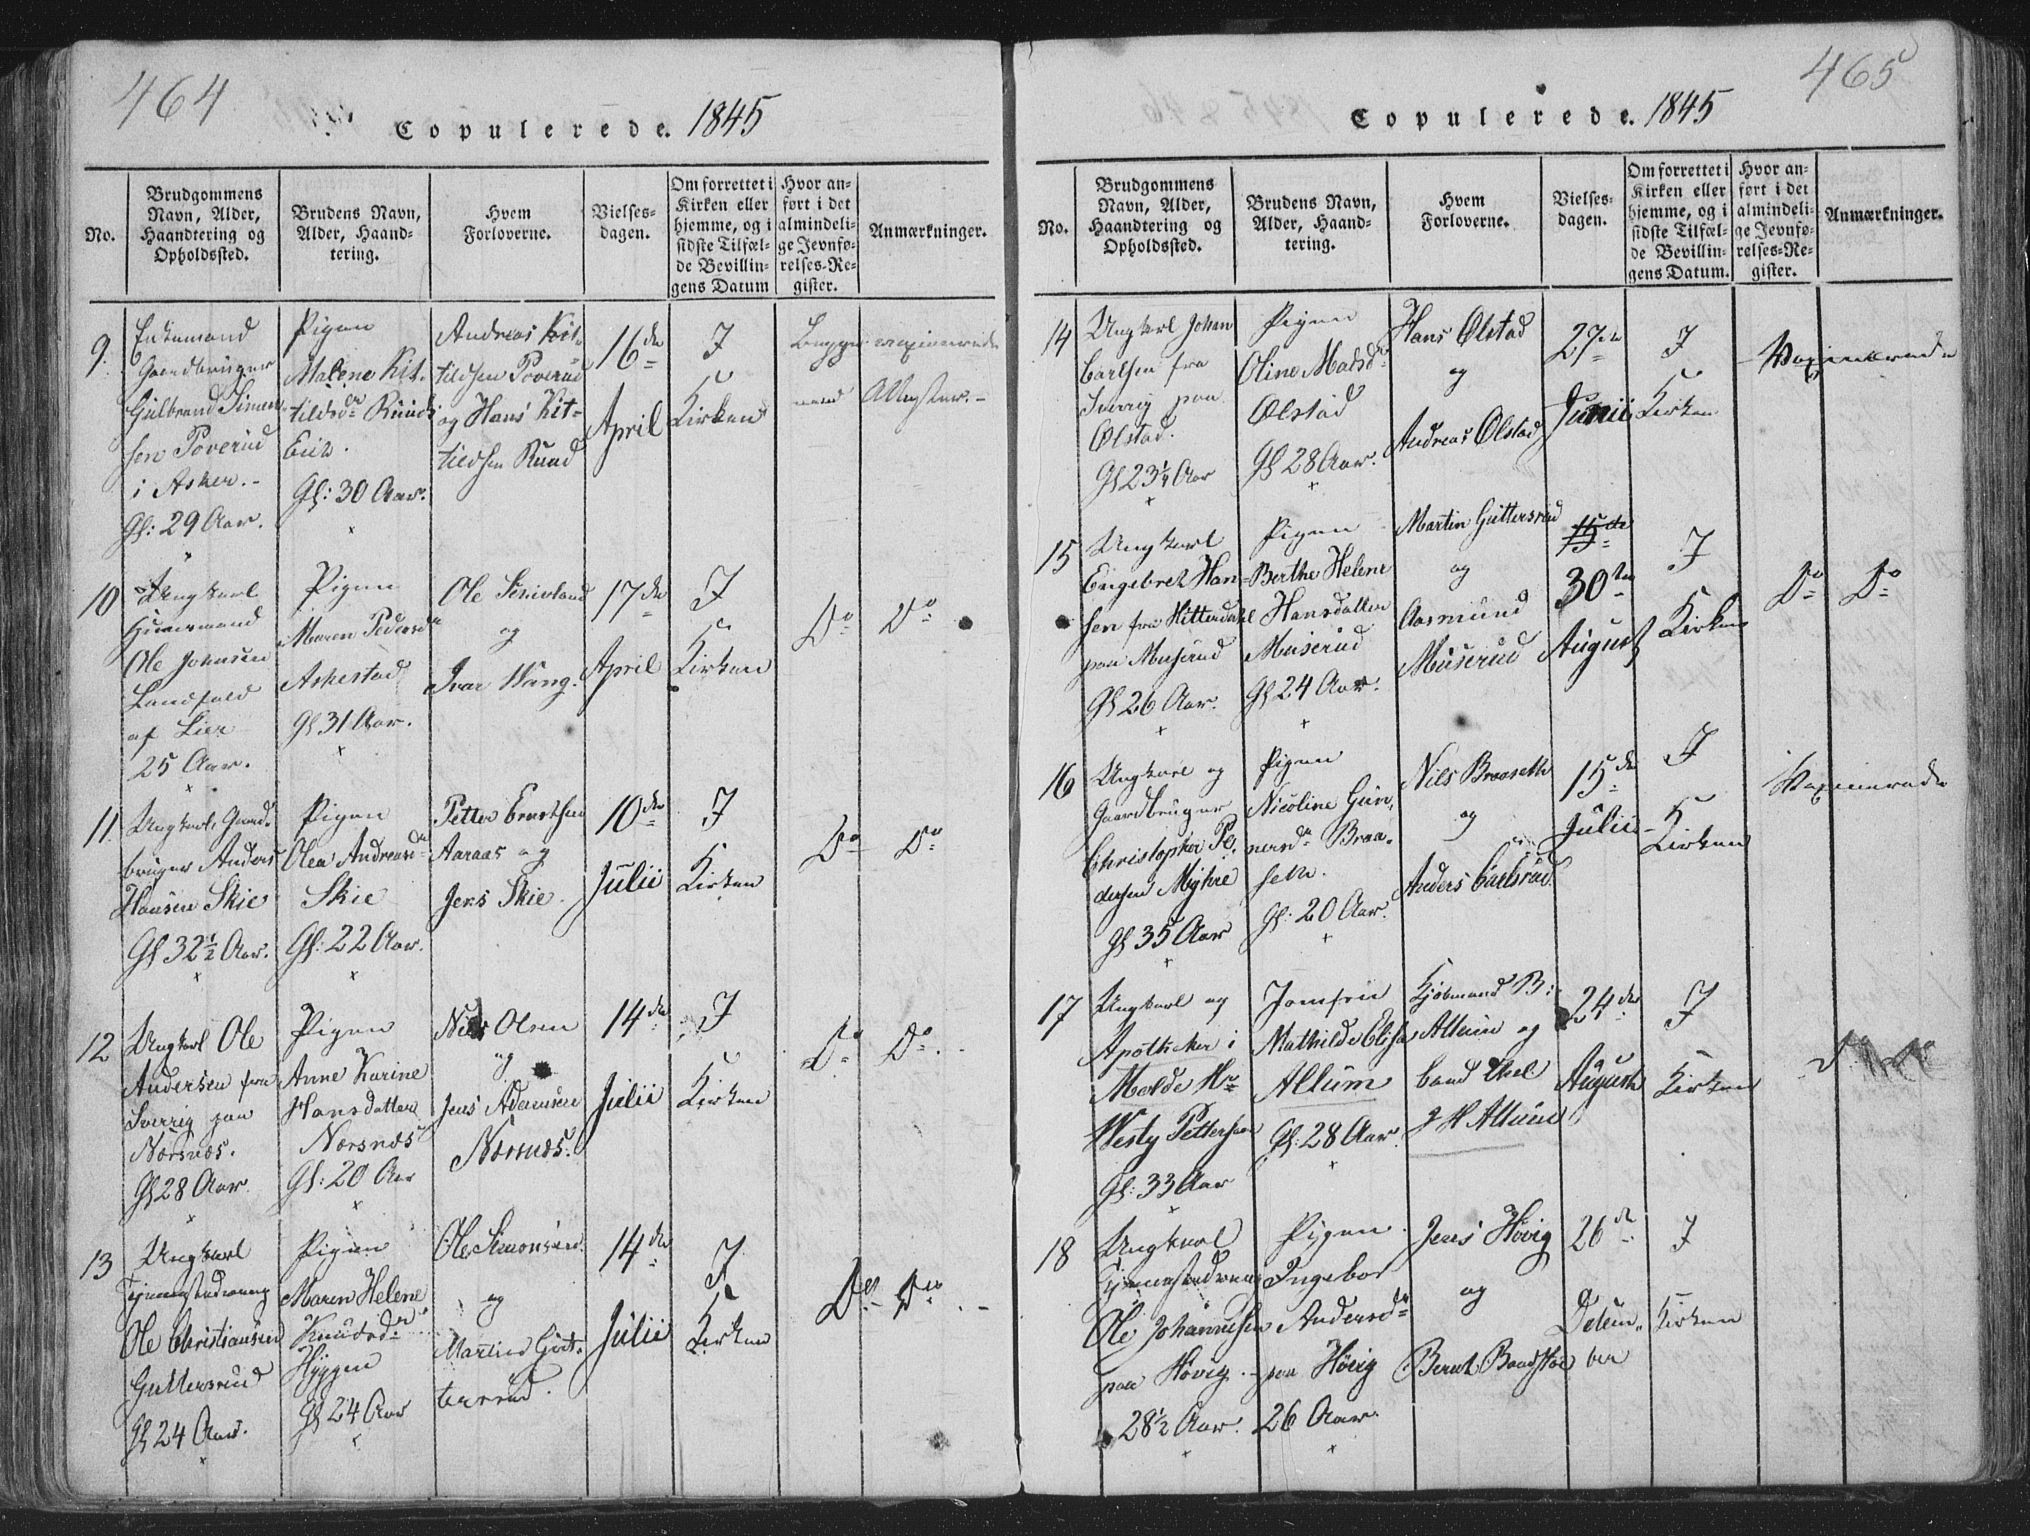 464
Copulerede. 1845
No.
Brudgommens
Navn, Alder,
Haandtering og
Opholdssted.
Brudens Navn,
Alder, Haand-
tering.
Hvem
Forloverne.
Vielses-
dagen.
Om forrettet i
Kirken eller
hjemme, og i
sidste Tilfæl-
de Bevillin-
gens Datum
Hvor an-
ført i det
almindeli-
ge Jevnfø-
relses-Re-
gister.
Anmærkninger.
9.
Enkemand
Gaardbruger
Gulbrand Simen-
sen Poverud
i Asker.-
Gl: 29 Aar.
Pigen
Malene Kit-
tilsdr Ruud
Gl: 30 Aar.
Andreas Kit-
tildsen Poverud
og Hans Kit-
tildsen Ruud
16de
April
I
Kirken
Begge vaxinerede
med Attester.-
10
Ungkarl
Huusmand
Ole Johnsen
Landfald
af Lier
25 Aar.
Pigen
Maren Pedersdr
Askestad
Gl 31 Aar.
Ole
og
Ivar Wang.
17de
April
I
Kirken
Do Do
11.
Ungkarl, Gaard-
bruger Anders
Hansen Skie
Gl 32½ Aar.
Pigen
Olea Andreasdr
Skie
Gl: 22 Aar.
Petter Erertsen
Aaraas og
Jens Skie.
10de
Julii
I
Kirken
Do Do
12
Ungkarl Ole
Andersen fra
Sverrig paa
Nærsnæs.
Gl 28 Aar.
Pigen
Anne Karine
Hansdatter
Nærsnæs
Gl: 20 Aar
Niels Olsen
og
Jens Adamsen
Nærsnæs.
14de
Julii
I
Kirken
Do Do.
13
Ungkarl
Tjenestedreng
Ole Christiansen
Guttersrud
Gl 24 Aar.
Pigen
Maren Helene
Knudsdr
Hyggen
Gl 24 Aar
Ole Simonsen
og
Martin Gut-
tersrud.
14de
Julii
I
Kirken
Do Do.-
465
Copulerede. 1845
No.
Brudgommens
Navn, Alder,
Haandtering og
Opholdssted.
Brudens Navn,
Alder, Haand-
tering.
Hvem
Forloverne.
Vielses-
dagen.
Om forrettet i
Kirken eller
hjemme, og i
sidste Tilfæl-
de Bevillin-
gens Datum.
Hvor an-
ført i det
almindeli-
ge Jevnfø-
relses-Re-
gister.
Anmærkninger.
14
Ungkarl Johan
Carlsen fra
Sverrig paa
Ølstad.
Gl 23¼ Aar
Pigen
Oline Matsdr
Ølstad
Gl 28 Aar.
Hans Ølstad
og
Andreas Ølstad
27de
Junii
I
Kirken
Vaxinerede
15
Ungkarl
Engebret Han-
sen fra Hitterdahl
paa Muserud
Gl 26 Aar.
Pigen
Berthe Helene
Hansdatter
Muserud
Gl 24 Aar.
Martin Guttersrud
og
Aasmund
Muserud
15de
30te
August
I
Kirken
Do Do
16
Ungkarl og
Gaardbruger
Christopher Pe-
dersen Myhre
Gl 35 Aar
Pigen
Nicoline Gun-
nersdr Braa-
Gl: 20 Aar.
Nils Braaseth
og
Anders Carlsrud.
15de
Julii
I
Kirken
Vaxinerede
17
Ungkarl og
Apotheker i
Molde Hr
Westy Pettersen
Gl: 33 Aar
Jomfru
Mathilde Elisa
Allum
Gl: 28 Aar.
Kjøbmand B:
Allum og
J H Allum
24de
August
I
Kirken
18
Ungkarl
Tjenestedreng
Ole Johannesen
paa Høvig.
28½ Aar.
Pigen
Ingebor
Andersdr
paa Høvig
26 Aar.
Jens Høvig
og
Bernt Baadstøe
26de
October
I
Kirken